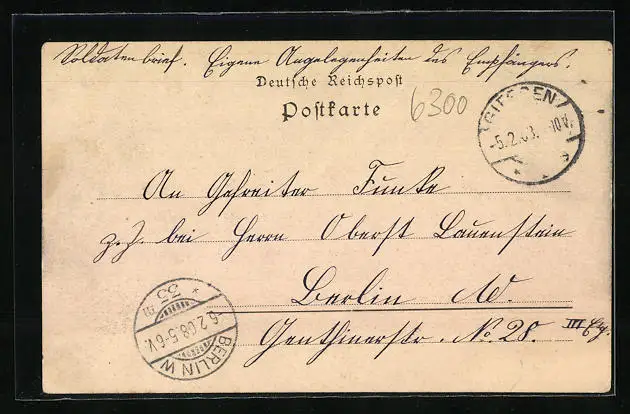 Soldatenbrief. Eigene Angelegenheiten des Empfängers.
Deutsche Reichspost
Postkarte
6300
GIESSEN
-5.2.08. 10V.
An Gefreiter Funke
z. Z. bei Herrn Oberst Lauenstein
Berlin W.
Genthinerstr. No 28. III
BERLIN W
6.2.08.5-6V.
35